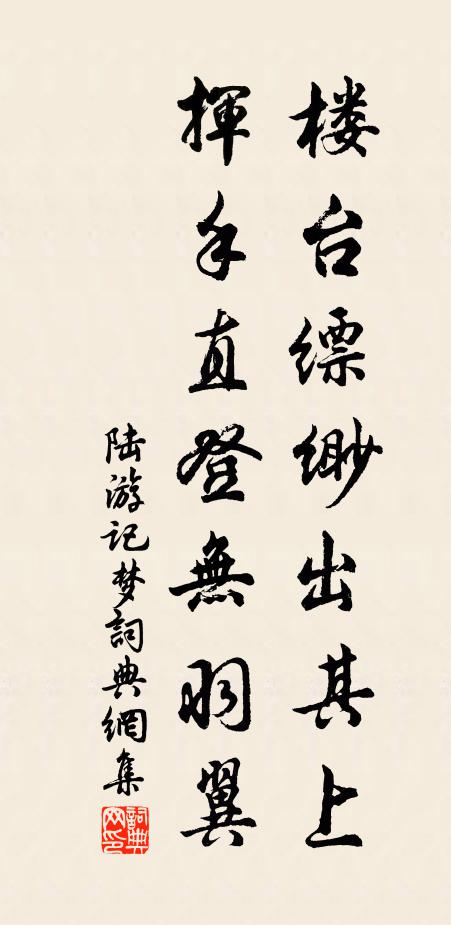 楼台缥缈出其上
揮手直登無羽翼
陆游记梦詞典網集
詞典网印